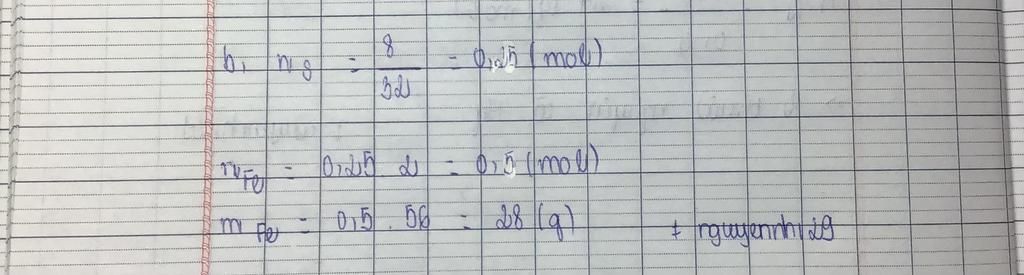 b, n S = 8/32 = 0,25 (mol)
nFe = 0,25 . 2 = 0,5 (mol)
m Fe = 0,5 . 56 = 28 (g) # nguyennhi29